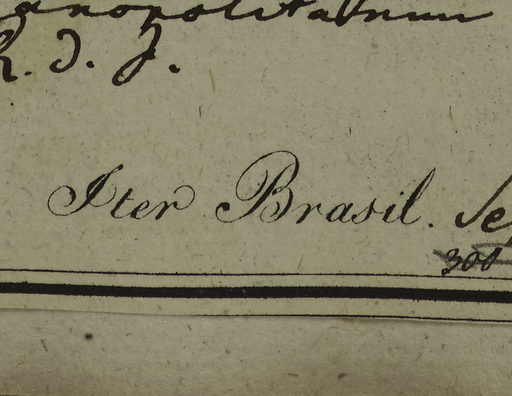 anopolitanum
R. d. J.
Iter Brasil.
300